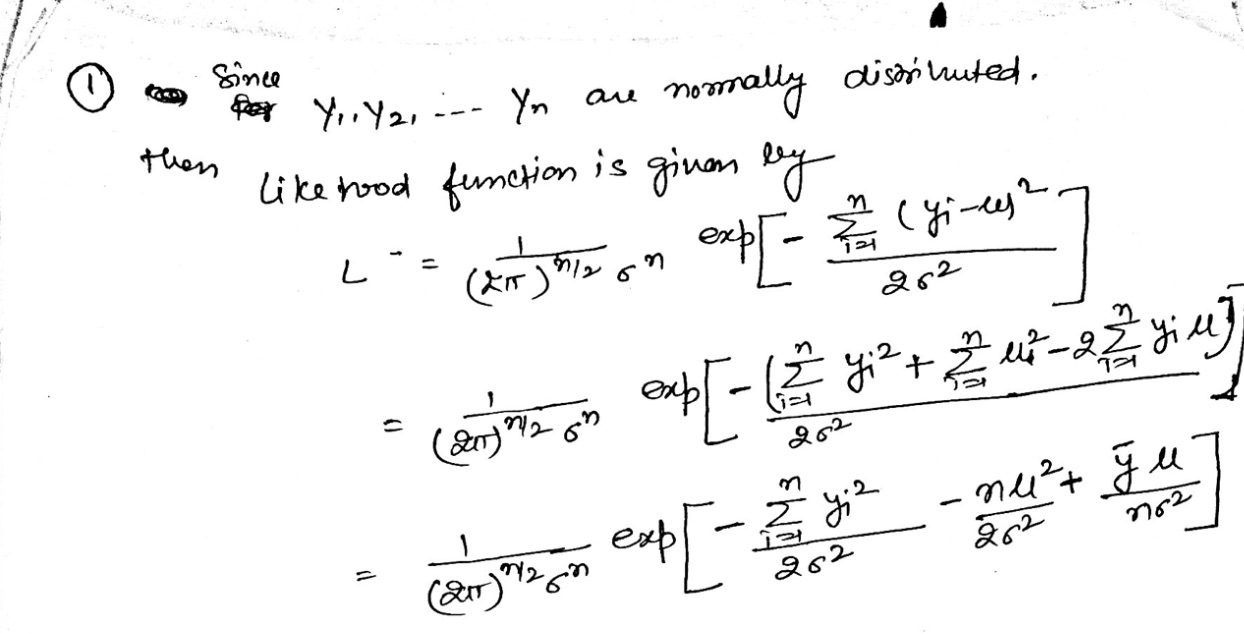 ① Since Y₁, Y₂, --- Yn are normally distributed.
then Like hood function is given by
L = 1/((2π)^(n/2) σ^n) exp[- Σ_{i=1}^{n} (yi-μ)² / 2σ²]
= 1/((2π)^(n/2) σ^n) exp[-(Σ_{i=1}^{n} yi² + Σ_{i=1}^{n} μi² - 2Σ_{i=1}^{n} yi μ) / 2σ²]
= 1/((2π)^(n/2) σ^n) exp[- Σ_{i=1}^{n} yi² / 2σ² - nμ²/2σ² + ȳμ/nσ²]